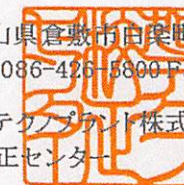 山県倉敷市白楽町
086-426-5800 F
テクノプラント株式
正センター